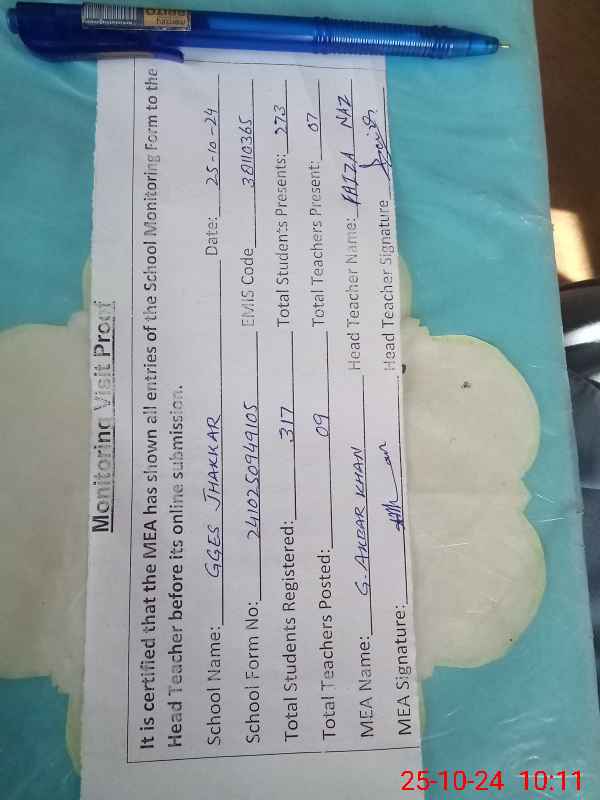 Monitoring Visit Proof
It is certified that the MEA has shown all entries of the School Monitoring Form to the
Head Teacher before its online submission.
School Name: GGES JHAKKAR Date: 25-10-24
School Form No: 2410250949105 EMIS Code 38110365
Total Students Registered: 317 Total Students Presents: 273
Total Teachers Posted: 09 Total Teachers Present: 07
MEA Name: G. AKBAR KHAN Head Teacher Name: FAIZA NAZ
MEA Signature: Head Teacher Signature
25-10-24 10:11